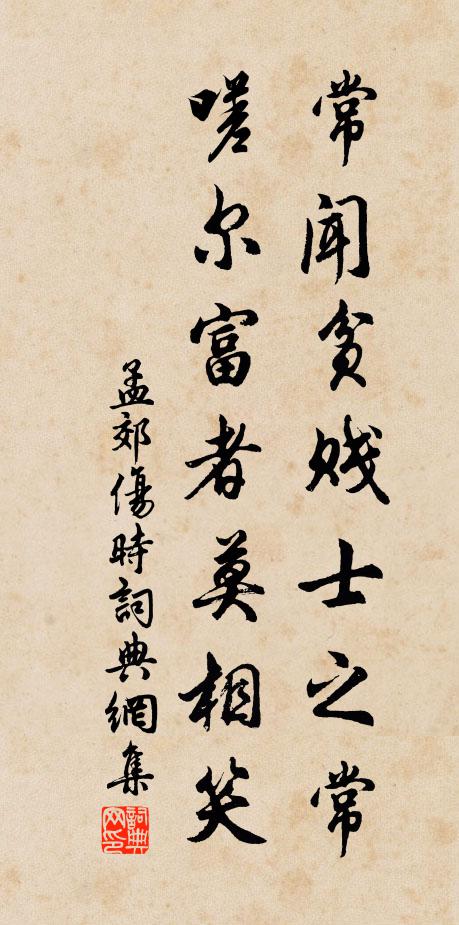 常闻贫贱士之常
嗟尔富者莫相笑
孟郊傷時詞典網集
詞典网印